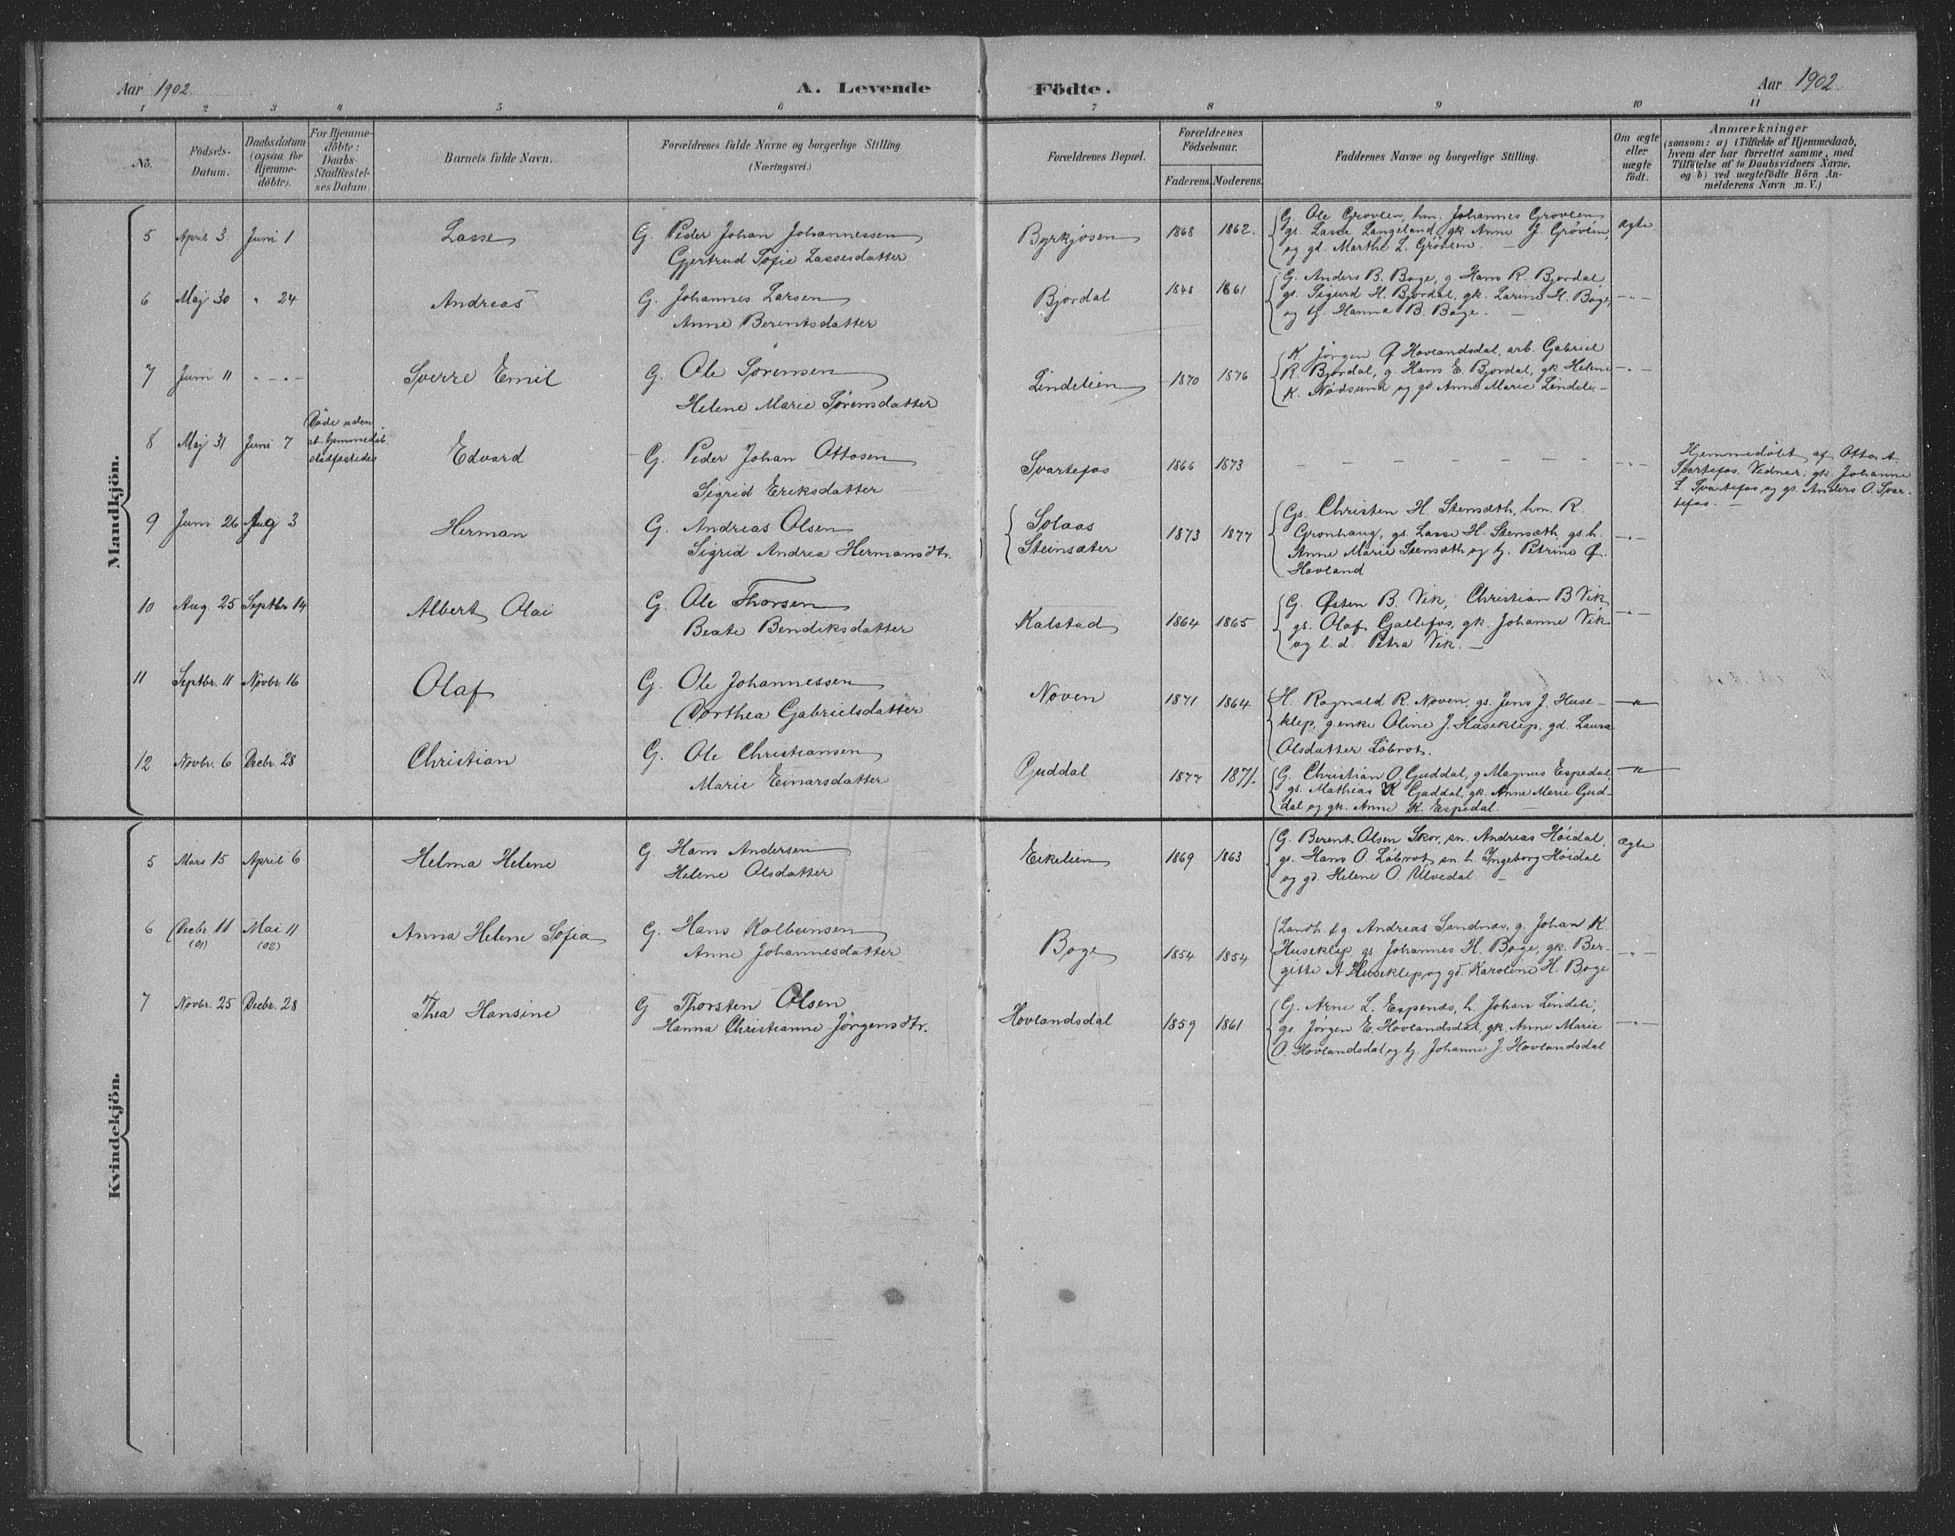 Aar 1902 A. Levende Födte. Aar 1902
1 2 3 4 5 6 7 8 9 10 11
No. Födsels-Datum. Daabsdatum (ogsaa for Hjemme-döbte). For Hjemme-döbte: Daabs-Stadfæstel-ses Datum. Barnets fulde Navn. Forældrenes fulde Navne og borgerlige Stilling. (Næringsvei.) Forældrenes Bopæl. Forældrenes Födselsaar. Faderens. Moderens. Faddernes Navne og borgerlige Stilling. Om ægte eller uægte födt. Anmærkninger (saasom: a) i Tilfælde af Hjemmedaab, hvem der har forrettet samme, med Tilföielse af to Daabsvidners Navne, og b) ved uægtefödte Börn An-melderens Navn m. V.)
Mandkjön.
5 April 3 Juni 1 Lasse G. Peder Johan Johannessen Byrkjosen 1868 1862. G. Ole Grovlen, hm. Johannes Grovlen ægte
Gjertrud Sofie Lassesdatter gs. Lasse Langeland gk. Anne J. Grovlen,
og gd. Marthe L. Grovlen. —
6 Maj 30 " 24 Andreas G. Johannes Larsen Bjordal 1848 1861 G. Anders B. Boge, g Hans R. Bjordal —"—
Anne Berentsdatter gs. Sigurd H. Bjordal, gk. Larine H. Boge,
og tj. Hanna B. Boge. —
7 Juni 11 —"— Sverre Emil G. Ole Sørensen Lindelien 1870 1876 K. Jørgen O Hovlandsdal, arb. Gabriel —"—
Helene Marie Sørensdatter R. Bjordal, g. Hans E. Bjordal, gk Helene
K. Nødsund og gd. Anne Marie Lindeli. —
8 Maj 31 Juni 7 Døde uden at hjemmedåb. stadfæstedes Edvard G. Peder Johan Ottosen Svartefos 1866 1873 — — — — — — —"— Hjemmedøbt af Otto A.
Sigrid Eriksdatter Svartefos. Vidner: gk. Johanne
L Svartefos og gs. Anders O. Svar-
tefos. —
9 Juni 26 Aug 3 Herman G. Andreas Olsen Solaas 1873 1877 Gs. Christen H Stensæth, hm. R. —"—
Sigrid Andrea Hermansdtr. Steinsæter Grønhaug, gs. Lasse H. Stensæth gs. h.
Anne Marie Stensæth og tj. Petrine O.
Hovland
10 Aug. 25 Septbr 14 Albert Olai G. Ole Thorsen Kalstad 1864 1865 G. Østen B. Vik, Christian B Vik —"—
Beate Bendiksdatter gs. Olaf Gallefos, gk. Johanne Vik
og l. d. Petra Vik. —
11 Septbr. 11 Novbr 16 Olaf G. Ole Johannessen Noven 1871 1864 H. Ragnald R. Noven, gs. Jens J. Huse- —"—
Dorthea Gabrielsdatter klep, g.enke Oline J. Huseklep, gd. Laura
Olsdatter Løbrot.
12 Novbr. 6 Decbr. 28 Christian G. Ole Christiansen Guddal 1877 1871. G. Christian O. Guddal, g Magnus Espedal, —"—
Marie Einarsdatter gs. Mathias K Guddal, gk. Anne Marie Gud-
dal og gk. Anne K. Espedal. —
Kvindekjön.
5 Mars 15 April 6 Helma Helene G Hans Andersen Eikelien 1869 1863 G. Berent Olsen Skor, en. Andreas Høidal, ægte
Helene Olsdatter gs. Hans O. Løbrot, en. h. Ingeborg Høidal
og gd. Helene O. Ulvedal. —
6 Decbr 11 (01) Mai 11 (02) Anna Helene Sofia G. Hans Kolbeinsen Boge 1854 1854 Landh. og Andreas Sandnæs, g. Johan K. —"—
Anne Johannesdatter Huseklep gs. Johannes H. Boge, gk. Ber-
gitte A Huseklep og gd. Karoline H. Boge
7 Novbr. 25 Decbr. 28 Thea Hansine G Thorsten Olsen Hovlandsdal 1859 1861 G. Arne L. Espenes, h. Johan Lindeli, —"—
Hanna Christianne Jörgensdtr. gs. Jørgen E. Hovlandsdal, gk. Anne Marie
O. Hovlandsdal og tj. Johanne J. Hovlandsdal